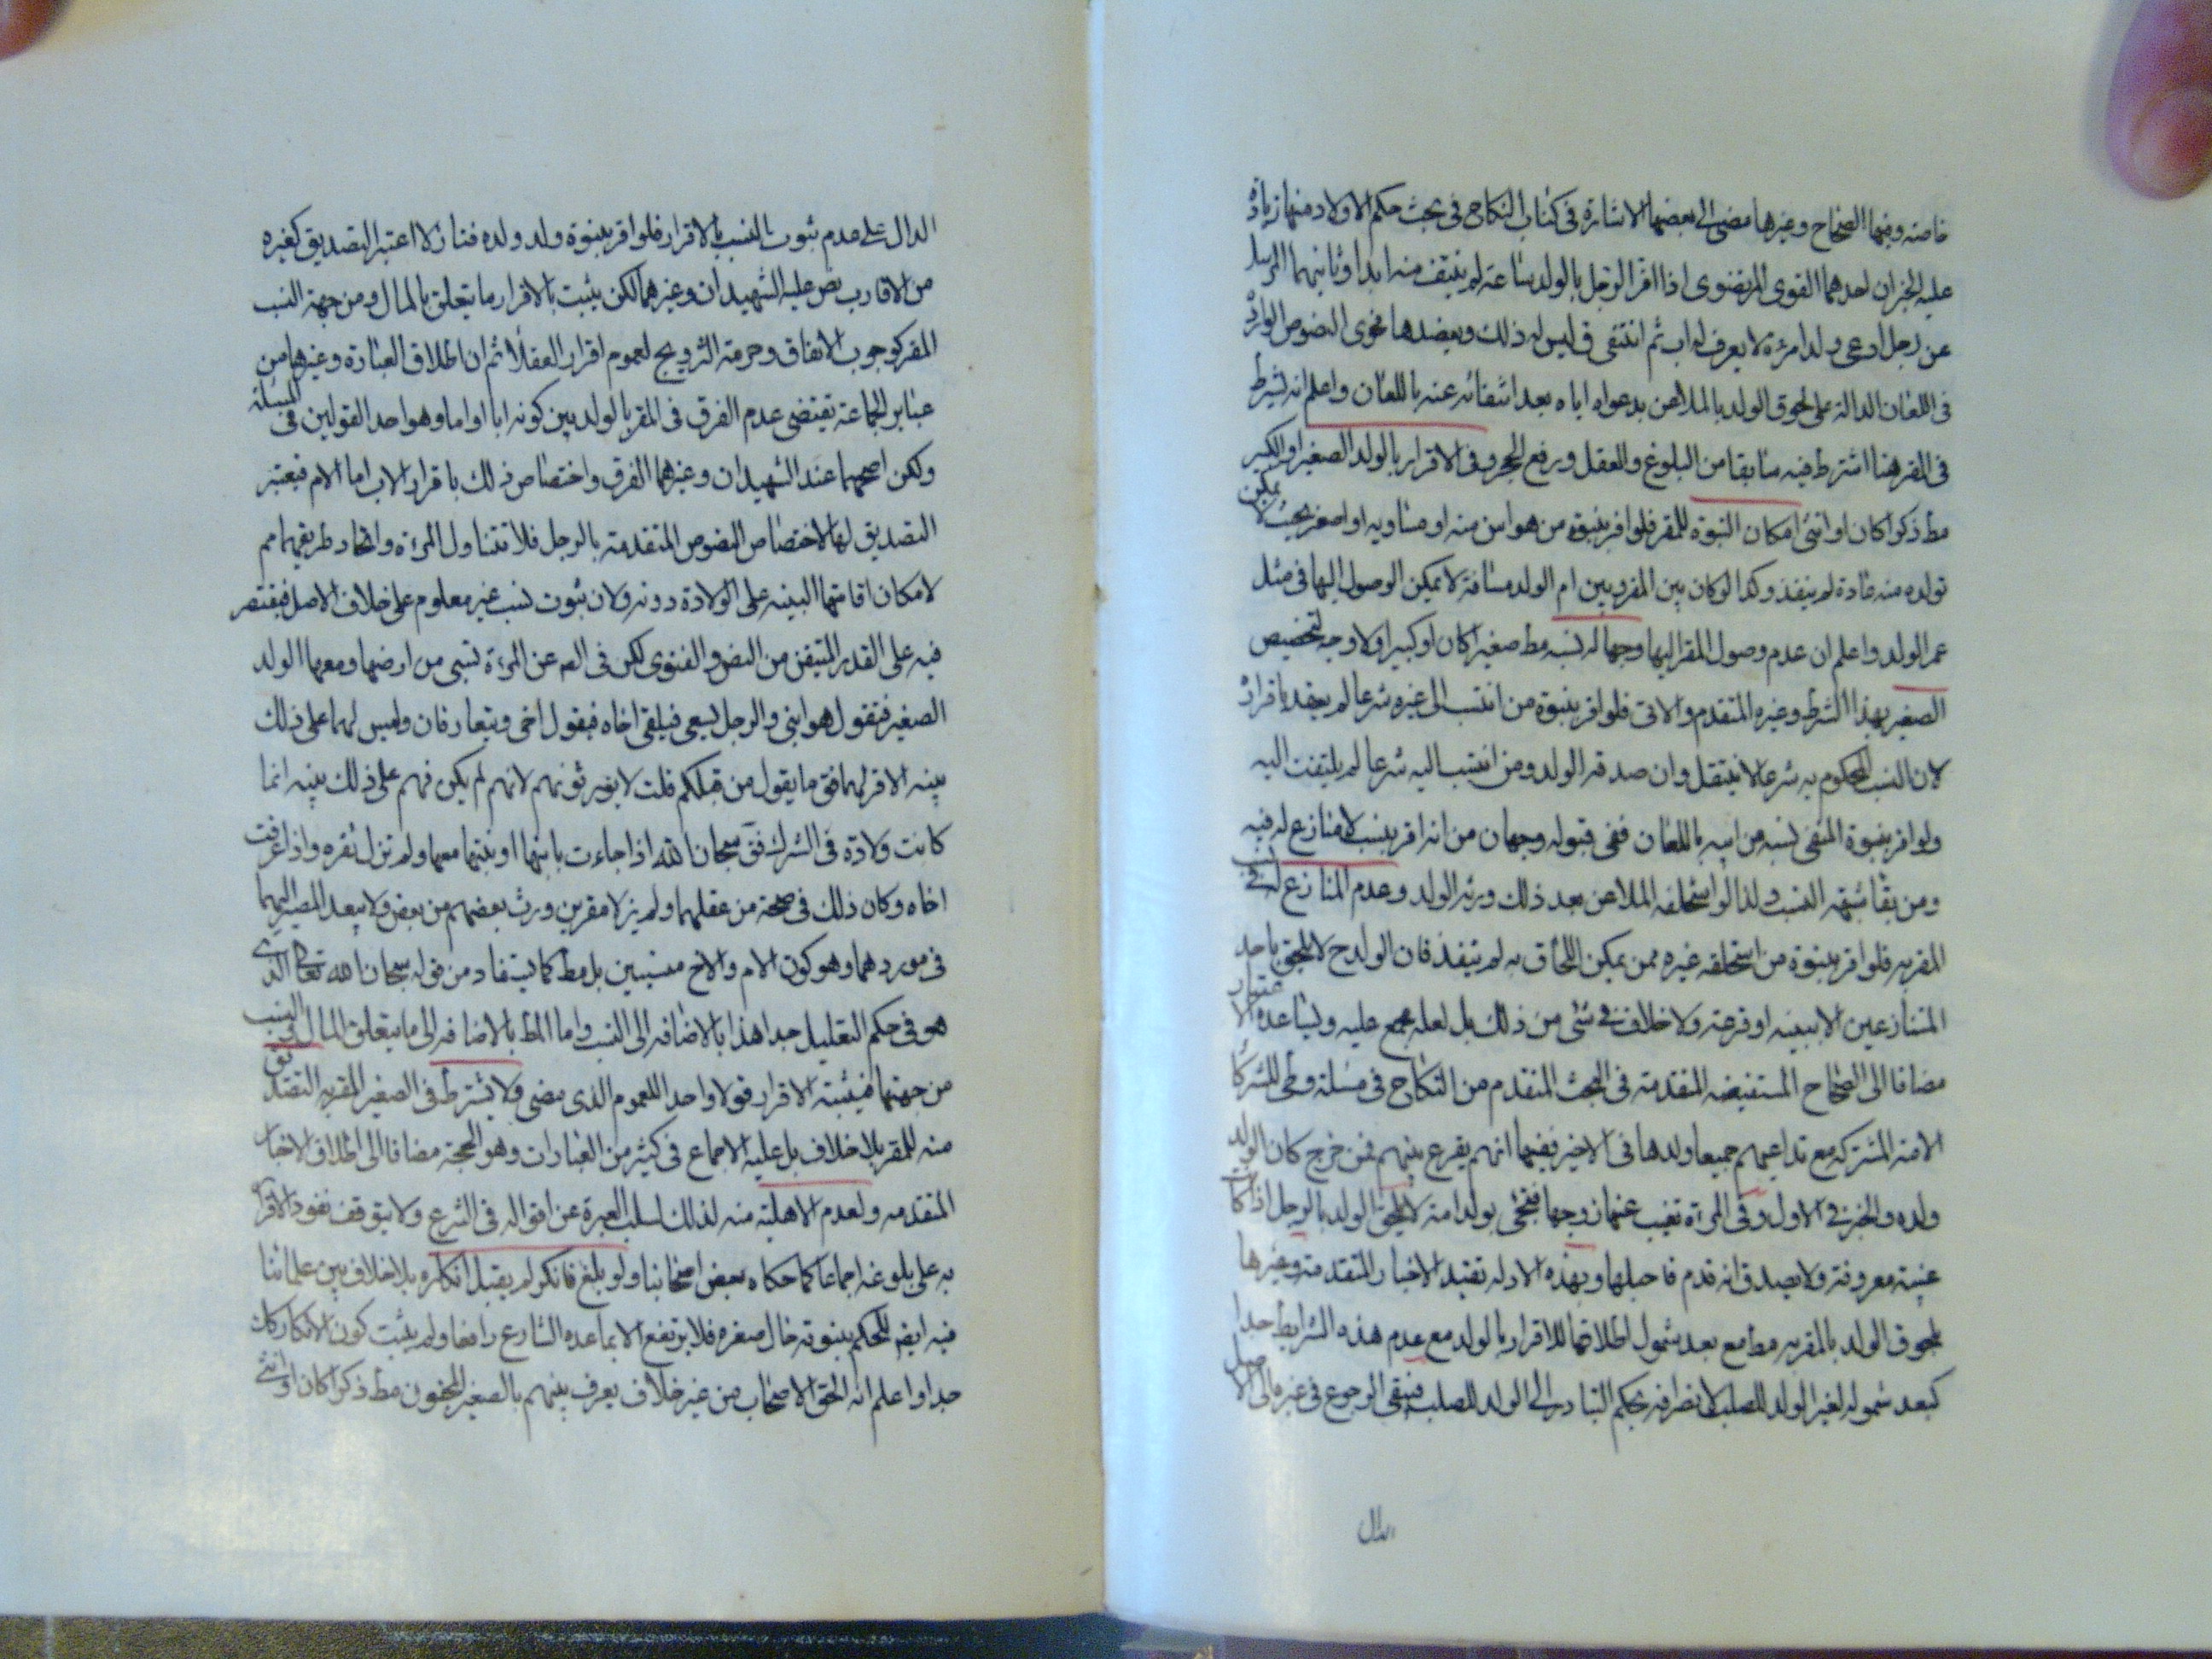 خاصته وفيها الصحاح وغيرها مضى الى بعضها الاشارة فى كتاب النكاح فى بحث حكم الاولاد منها زيادة
عليه الخبران احدهما القوى المرتضوى اذا اقر الرجل بالولد ساعة لم ينتف منه ابدا وثانيهما المرسل
عن رجل ادعى ولد امرئة لا يعرف له اب ثم انتفى ق ليس له ذلك ويعضدها فحوى النصوص الواردة
فى اللعان الدالة على لحوق الولد بالملاعن بدعواه اياه بعد انتفائه عنه باللعان واعلم انه يشترط
فى المقر هنا ما اشترط فيه سابقا من البلوغ والعقل ورفع الحجر وفى الاقرار بالولد الصغير او الكبير
مط ذكرا كان او انثى امكان البنوة للمقر فلو اقر ببنوة من هو اسن منه او مساويه او اصغر بحيث لا يمكن
تولده منه عادة لم ينفذ وكذا لو كان بين المقر وبين ام الولد مسافة لا يمكن الوصول اليها فى مثل
عمر الولد واعلم ان عدم وصول المقر اليها وجهالة نسبه مط صغيرا كان او كبيرا ولا وجه لتخصيص
الصغير بهذا الشرط وغيره المتقدم والاتى فلو اقر ببنوة من انتسب الى غيره شرعا لم يعتد باقراره
لان النسب المحكوم به شرعا لا ينتقل وان صدقه الولد ومن انتسب اليه شرعا لم يلتفت اليه
ولو اقر ببنوة المنفى نسبه من ابيه باللعان ففى قبوله وجهان من انه اقر بنسب لا منازع له فيه
ومن بقا شبهة النسب ولذا لو استلحقه الملاعن بعد ذلك ورثه الولد وعدم المنازع له فى نسب
المقر به فلو اقر ببنوة من استلحقه غيره ممن يمكن اللحاق به لم ينفذ فان الولد ح لا يلحق باحد
المتنازعين الا ببينة او قرعة ولا خلاف فى شئى من ذلك بل لعله مجمع عليه ويساعده الاعتبار
مضافا الى الصحاح المستفيضة المتقدمة فى البحث المتقدم من النكاح فى مسئلة وطى الشركا
الامة المشتركة مع تداعيهم جميعا ولدها فى الاخير ففيها انهم يقرع بينهم فمن خرج كان الولد
ولده والخبر فى الاول وفى المرءة تغيب عنها زوجها فتجئى بولد انه لا يلحق الولد بالرجل اذا كانت
غيبته معروفة ولا يصدق انه قدم فاحبلها وبهذه الادلة تقيد الاخبار المتقدمة وغيرها
بلحوق الولد بالمقر به مط مع بعد شمول اطلاقها للاقرار بالولد مع عدم هذه الشرايط جدا
كبعد شموله لغير الولد للصلب لانصرافه بحكم التبادر الى الولد للصلب فيبقى الرجوع فى غيره الى الاصل
الدال
الدال على عدم ثبوت النسب بالاقرار فلو اقر ببنوة ولد ولده فنازلا اعتبر التصديق كغيره
من الاقارب نص عليه الشهيدان وغيرهما لكن يثبت بالاقرار ما يتعلق بالمال ومن جهة النسب
المقر كوجوب الانفاق وحرمة التزويج لعموم اقرار العقلاء ثم ان اطلاق العبارة وغيرها من
عباير الجماعة يقتضى عدم الفرق فى المقر بالولد بين كونه ابا او اما وهو احد القولين فى المسئلة
ولكن اصحهما عند الشهيدان وغيرهما الفرق واختصاص ذلك باقرار الاب اما الام فيعتبر
التصديق لها لاختصاص النصوص المتقدمة بالرجل فلا تتناول المرءة واتحاد طريقهما مم
لامكان اقامتها البينة على الولادة دونه ولان ثبوت نسب غير معلوم على خلاف الاصل فيقتصر
فيه على القدر المتيقن من النص والفتوى لكن فى الصه عن المرءة تسبى من ارضها ومعها الولد
الصغير فتقول هو ابنى والرجل يسبى فيلقى اخاه فيقول اخى ويتعارفان وليس لهما على ذلك
بينة الا قولهما فق ما يقول من قبلكم قلت لا يورثونهم لانهم لم يكن لهم على ذلك بينة انما
كانت ولادة فى الشرك فق سبحان الله اذا جاءت بابنها او بنتها معها ولم تزل مقره واذا عرفت
اخاه وكان ذلك فى صحة من عقلهما ولم يزالا مقرين ورث بعضهم من بعض ولا يبعد المصير اليهما
فى موردهما وهو كون الام والاخ مسبيين بل مط كما يستفاد من قوله سبحان الله تعالى الذى
هو فى حكم التعليل جدا هذا بالاضافة الى النسب واما المط بالاضافة الى ما يتعلق بالمال فى النسب
من جهتها فيثبته الاقرار قولا واحدا للعموم الذى مضى ولا يشترط فى الصغير المقر به التصديق
منه للمقر بلا خلاف بل عليه الاجماع فى كثير من العبارات وهو الحجة مضافا الى اطلاق الاخبار
المتقدمه ولعدم الاهلية منه لذلك لسلب العبرة عن اقواله فى الشرع ولا يتوقف نفوذ الاقرار
به على بلوغه اجماعا كما حكاه بعض اصحابنا ولو بلغ فانكر لم يقبل انكاره بلا خلاف بين علمائنا
فيه ايضا للحكم ببنوته حال صغره فلا يرتفع الا بما عده الشارع رافعا ولم يثبت كون الانكار كك
جدا واعلم انه الحق الاصحاب من غير خلاف يعرف بينهم بالصغير المجنون مط ذكرا كان او انثى